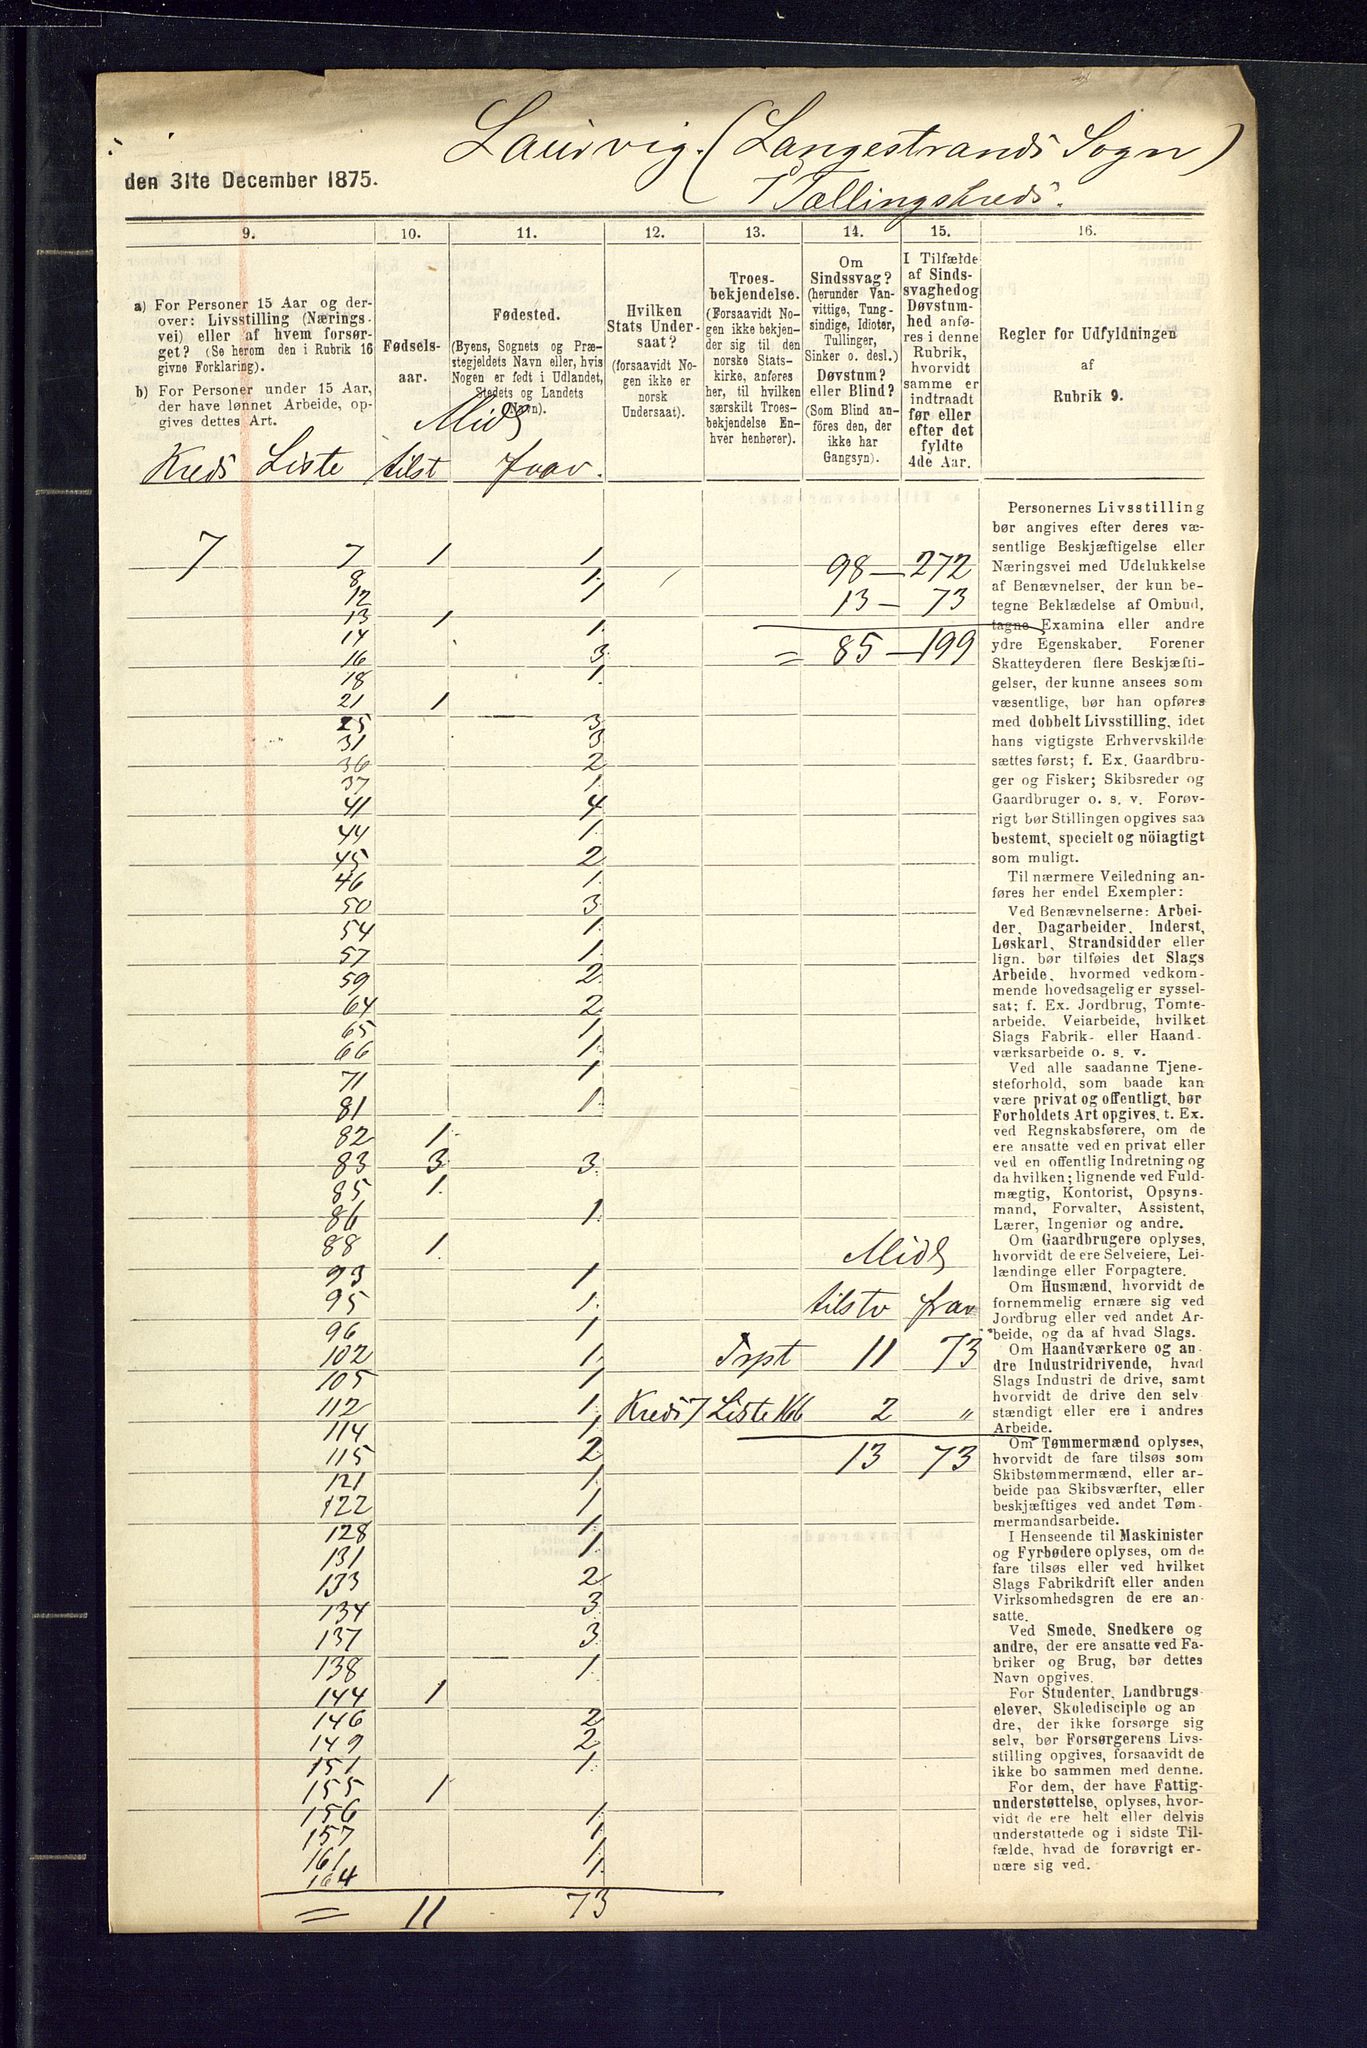 Laurvig. (Langestrands Sogn)
7 Tællingskreds.
den 31te December 1875.
9.
10.
11.
12.
13.
14.
15.
16.
a) For Personer 15 Aar og der-
over: Livsstilling (Nærings-
vei) eller af hvem forsør-
get? (Se herom den i Rubrik 16
givne Forklaring).
b) For Personer under 15 Aar,
der have lønnet Arbeide, op-
gives dettes Art.
Fødsels-
aar.
Fødested.
(Byens, Sognets og Præ-
stegjeldets Navn eller, hvis
Nogen er født i Udlandet,
Stedets og Landets
Navn).
Hvilken
Stats Under-
saat?
(forsaavidt No-
gen ikke er
norsk
Undersaat).
Troes-
bekjendelse.
(Forsaavidt No-
gen ikke bekjen-
der sig til den
norske Stats-
kirke, anføres
her, til hvilken
særskilt Troes-
bekjendelse En-
hver henhører).
Om
Sindssvag?
(herunder Van-
vittige, Tung-
sindige, Idioter,
Tullinger,
Sinker o. desl.)
Døvstum?
eller Blind?
(Som Blind an-
föres den, der
ikke har
Gangsyn).
I Tilfælde
af Sinds-
svaghed og
Døvstum-
hed anfø-
res i denne
Rubrik,
hvorvidt
samme er
indtraadt
før eller
efter det
fyldte
4de Aar.
Regler for Udfyldningen
af
Rubrik 9.
Midl
Kreds Liste tilst frav.
7 7 1 1
8 1
12 1
13 1
14 1
16 3
18 1
21 1
25 3
31 3
36 2
37 1
41 4
44 1
45 2
46 1
50 3
54 1
57 1
59 2
64 2
65 1
66 1
71 1
81 1
82 1
83 3 3
85 1
86 1
88 1
93 1
95 1
96 1
102 1
105 1
112 1
114 1
115 2
121 1
122 1
128 1
131 1
133 2
134 3
137 3
138 1
144 1
146 2
149 2
151 1
155 1
156 1
157 1
161 1
164 1
= 11 73
98 — 272
13 — 73
= 85 — 199
Midl
tilstv frav
Trspt 11 73
Kreds 7 Liste 166 2 "
13 73
Personernes Livsstilling
bør angives efter deres væ-
sentlige Beskjæftigelse eller
Næringsvei med Udelukkelse
af Benævnelser, der kun be-
tegne Beklædelse af Ombud,
tagne Examina eller andre
ydre Egenskaber. Forener
Skatteyderen flere Beskjæfti-
gelser, der kunne ansees som
væsentlige, bør han opføres
med dobbelt Livsstilling, idet
hans vigtigste Erhvervskilde
sættes først; f. Ex. Gaardbru-
ger og Fisker; Skibsreder og
Gaardbruger o. s. v. Forøv-
rigt bør Stillingen opgives saa
bestemt, specielt og nöiagtigt
som muligt.
Til nærmere Veiledning an-
føres her endel Exempler:
Ved Benævnelserne: Arbei-
der, Dagarbeider, Inderst,
Løskarl, Strandsidder eller
lign. bør tilføies det Slags
Arbeide, hvormed vedkom-
mende hovedsagelig er syssel-
sat; f. Ex. Jordbrug, Tomte-
arbeide, Veiarbeide, hvilket
Slags Fabrik- eller Haand-
værksarbeide o. s. v.
Ved alle saadanne Tjene-
steforhold, som baade kan
være privat og offentligt, bør
Forholdets Art opgives, t. Ex.
ved Regnskabsførere, om de
ere ansatte ved en privat eller
ved en offentlig Indretning og
da hvilken; lignende ved Fuld-
mægtig, Kontorist, Opsyns-
mand, Forvalter, Assistent,
Lærer, Ingeniør og andre.
Om Gaardbrugere oplyses,
hvorvidt de ere Selveiere, Lei-
lændinge eller Forpagtere.
Om Husmænd, hvorvidt de
fornemmelig ernære sig ved
Jordbrug eller ved andet Ar-
beide, og da af hvad Slags.
Om Haandværkere og an-
dre Industridrivende, hvad
Slags Industri de drive, samt
hvorvidt de drive den selv-
stændigt eller ere i andres
Arbeide.
Om Tømmermænd oplyses,
hvorvidt de fare tilsøs som
Skibstømmermænd, eller ar-
beide paa Skibsværfter, eller
beskjæftiges ved andet Tøm-
mermandsarbeide.
I Henseende til Maskinister
og Fyrbødere oplyses, om de
fare tilsøs eller ved hvilket
Slags Fabrikdrift eller anden
Virksomhedsgren de ere an-
satte.
Ved Smede, Snedkere og
andre, der ere ansatte ved Fa-
briker og Brug, bør dettes
Navn opgives.
For Studenter, Landbrugs-
elever, Skoledisciple og an-
dre, der ikke forsørge sig
selv, bør Forsørgerens Livs-
stilling opgives, forsaavidt de
ikke bo sammen med denne.
For dem, der have Fattig-
understøttelse, oplyses, hvor-
vidt de ere helt eller delvis
understøttede og i sidste Til-
fælde, hvad de forøvrigt er-
nære sig ved.